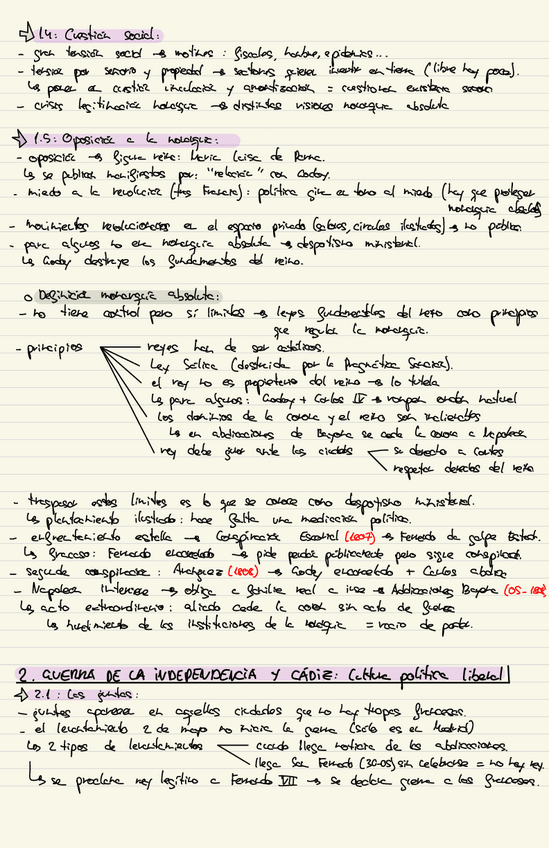 → 1.4: Cuestión social:
- gran tensión social → motines: fiscales, hambre, epidemias...
- tensión por señorío y propiedad → sectores quieren invertir en tierra (libre hay poca).
↳ poner en cuestión vinculación y amortización = cuestionar existencia señorío
- crisis legitimación monarquía → distintas visiones monarquía absoluta
→ 1.5: Oposición a la monarquía:
- oposición → figura reina: María Luisa de Parma.
↳ se publican manifiestos por: "relación" con Godoy.
- miedo a la revolución (tras Francia): política gira en torno al miedo (hay que proteger
monarquía absoluta)
- movimientos revolucionarios en el espacio privado (salones, círculos ilustrados) → no público.
- para algunos no era monarquía absoluta → despotismo ministerial.
↳ Godoy destruye los fundamentos del reino.
○ Definición monarquía absoluta:
- no tiene control pero sí límites → leyes fundamentales del reino como principios
que regulan la monarquía.
- principios
reyes han de ser católicos.
Ley Sálica (destruida por la Pragmática Sanción).
el rey no es propietario del reino → lo tutela
↳ para algunos: Godoy + Carlos IV → rompen orden natural
los dominios de la corona y el reino son inalienables
↳ en abdicaciones de Bayona se cede la corona a Napoleón
rey debe jurar ante las ciudades
su derecho a Cortes
respetar derechos del reino
- traspasar estos límites es lo que se conoce como despotismo ministerial.
↳ planteamiento ilustrado: hace falta una mediación política.
- enfrentamiento estalla → Conspiración Escorial (1807) → Fernando da golpe Estado.
↳ fracaso: Fernando encarcelado → pide perdón públicamente pero sigue conspirando.
- segunda conspiración: Aranjuez (1808) → Godoy encarcelado + Carlos abdica
- Napoleón interviene → obliga a familia real a irse → Abdicaciones Bayona (05-1808)
↳ acto extraordinario: aliado cede la corona sin acto de fuerza
↳ hundimiento de las instituciones de la monarquía = vacío de poder.
2. GUERRA DE LA INDEPENDENCIA Y CÁDIZ: Cultura política liberal
→ 2.1: Las juntas:
- juntas aparecen en aquellas ciudades que no hay tropas francesas.
- el levantamiento 2 de mayo no inicia la guerra (sólo es en Madrid)
↳ 2 tipos de levantamientos
cuando llega noticia de las abdicaciones.
llega San Fernando (30-05) sin celebrarse = no hay rey.
↳ se proclama rey legítimo a Fernando VII → se declara guerra a los franceses.